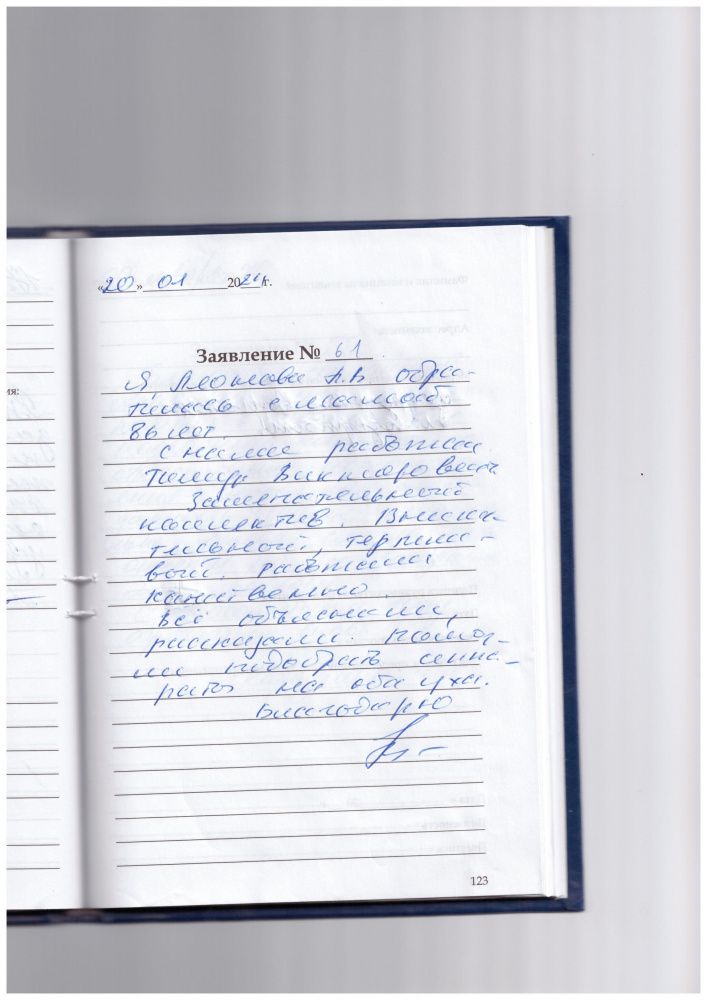 «20» 01 2021 г.
Заявление № 61
Я, А.В. обра-
тилась с мамой.
8ь лет.
С нами работал
Тимур Викторович
Замечательный
коллектив. Внима-
тельный, терпели-
вый. работали
качественно.
Всё объяснили,
рассказали. Помог-
ли подобрать аппа-
раты на оба уха.
Благодарю
123
ия: